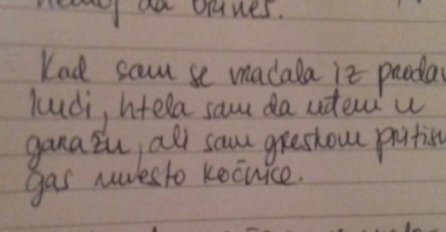 da brineš.
Kad sam se vraćala iz prodav
kući, htela sam da uđem u
garažu, ali sam greškom pritisn
gas umesto kočnice.